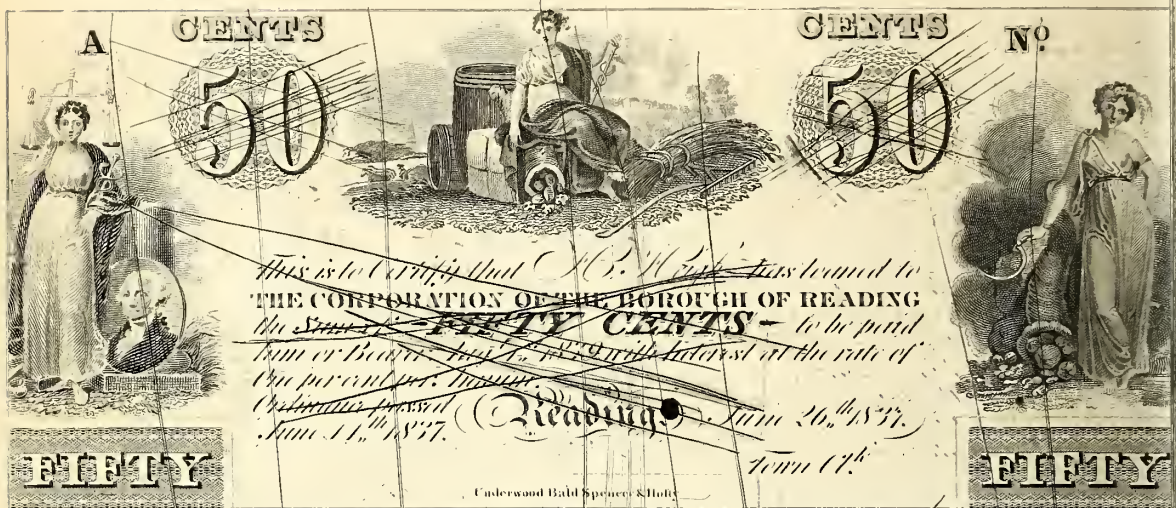 A CENTS CENTS No.
50 50
This is to Certify that has loaned to
THE CORPORATION OF THE BOROUGH OF READING
the Sum of - FIFTY CENTS - to be paid
him or Bearer with Interest at the rate of
One per cent per Annum.
Ordinance passed Reading June 26,,th 1837.
June 14,,th 1837.
Town Clk
FIFTY FIFTY
Underwood Bald Spencer & Hufty